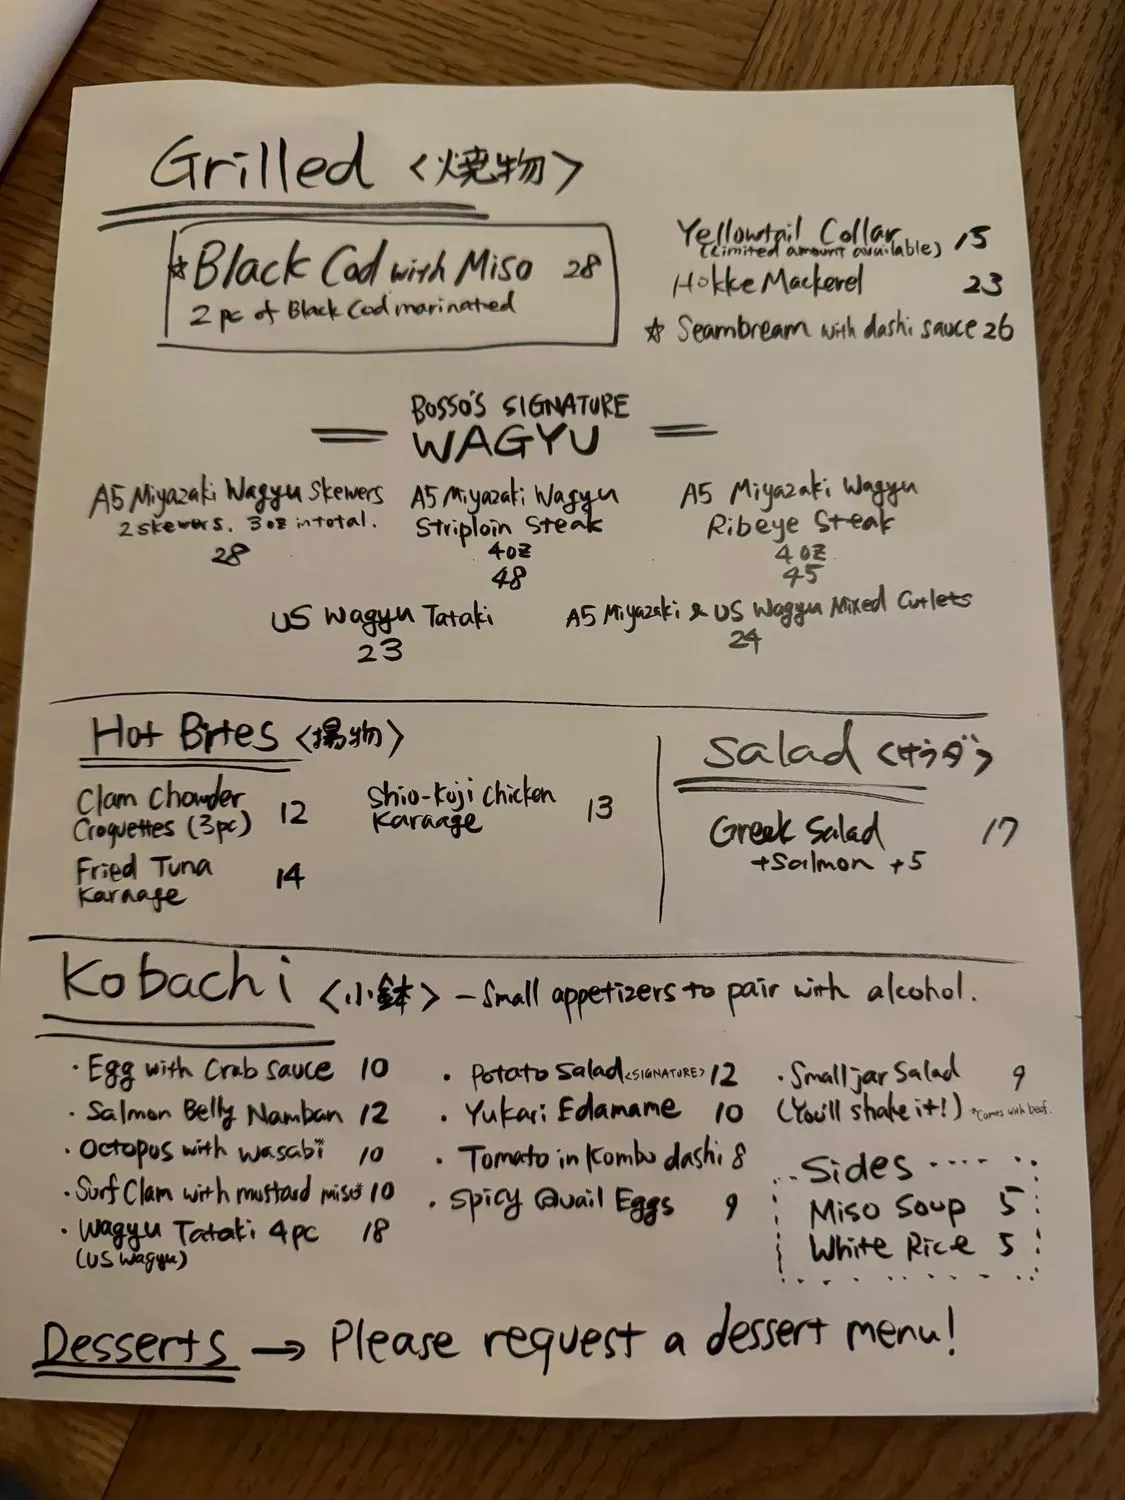 Grilled <焼物>
☆Black Cod with Miso 28
2 pc of Black Cod marinated
Yellowtail Collar 15
(Limited amount available)
Hokke Mackerel 23
☆ Seambream with dashi sauce 26
BOSSO'S SIGNATURE
WAGYU
A5 Miyazaki Wagyu Skewers
2 skewers. 3oz in total.
28
A5 Miyazaki Wagyu
Striploin Steak
4oz
48
A5 Miyazaki Wagyu
Ribeye Steak
4oz
45
US Wagyu Tataki
23
A5 Miyazaki & US Wagyu Mixed Cutlets
24
Hot Bites <揚物>
Clam Chowder
Croquettes (3pc) 12
Fried Tuna
Karaage 14
Shio-Koji Chicken
Karaage 13
Salad <サラダ>
Greek Salad 17
+Salmon +5
Kobachi <小鉢> – Small appetizers to pair with alcohol.
・Egg with Crab Sauce 10
・Salmon Belly Namban 12
・Octopus with wasabi 10
・Surf Clam with mustard miso 10
・Wagyu Tataki 4pc 18
(US Wagyu)
・Potato Salad <SIGNATURE> 12
・Yukari Edamame 10
・Tomato in Kombu dashi 8
・Spicy Quail Eggs 9
・Small jar Salad 9
(You'll shake it!) *Comes with beef.
Sides
Miso Soup 5
White Rice 5
Desserts → Please request a dessert menu!